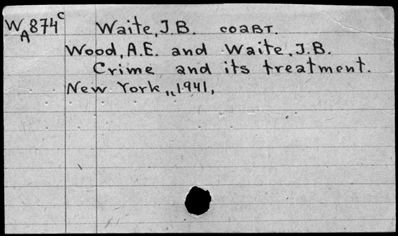 WA874c Waite, J.B. соавт.
Wood, A.E. and Waite, J.B.
Crime and its treatment.
New York,, 1941,